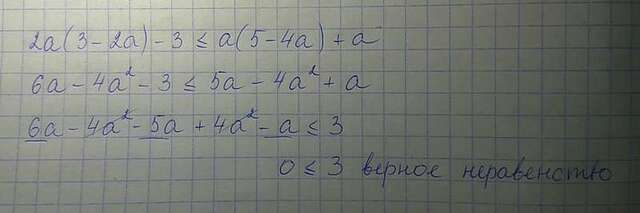 2a(3-2a)-3 ≤ a(5-4a)+a
6a-4a²-3 ≤ 5a-4a²+a
6a-4a²-5a+4a²-a ≤ 3
0 ≤ 3 верное неравенство